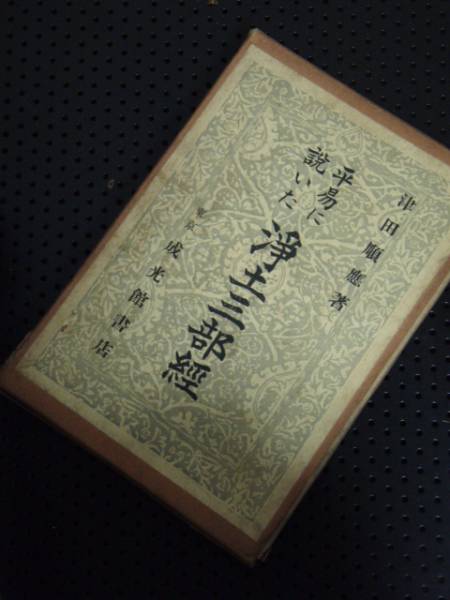 津田順應著
平易に
說いた
淨土三部經
東京 成光館書店